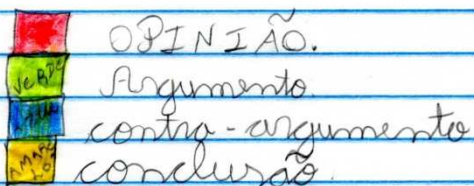 OPINIÃO.
VERDE Argumento.
AZUL contra-argumento
AMARELO conclusão.